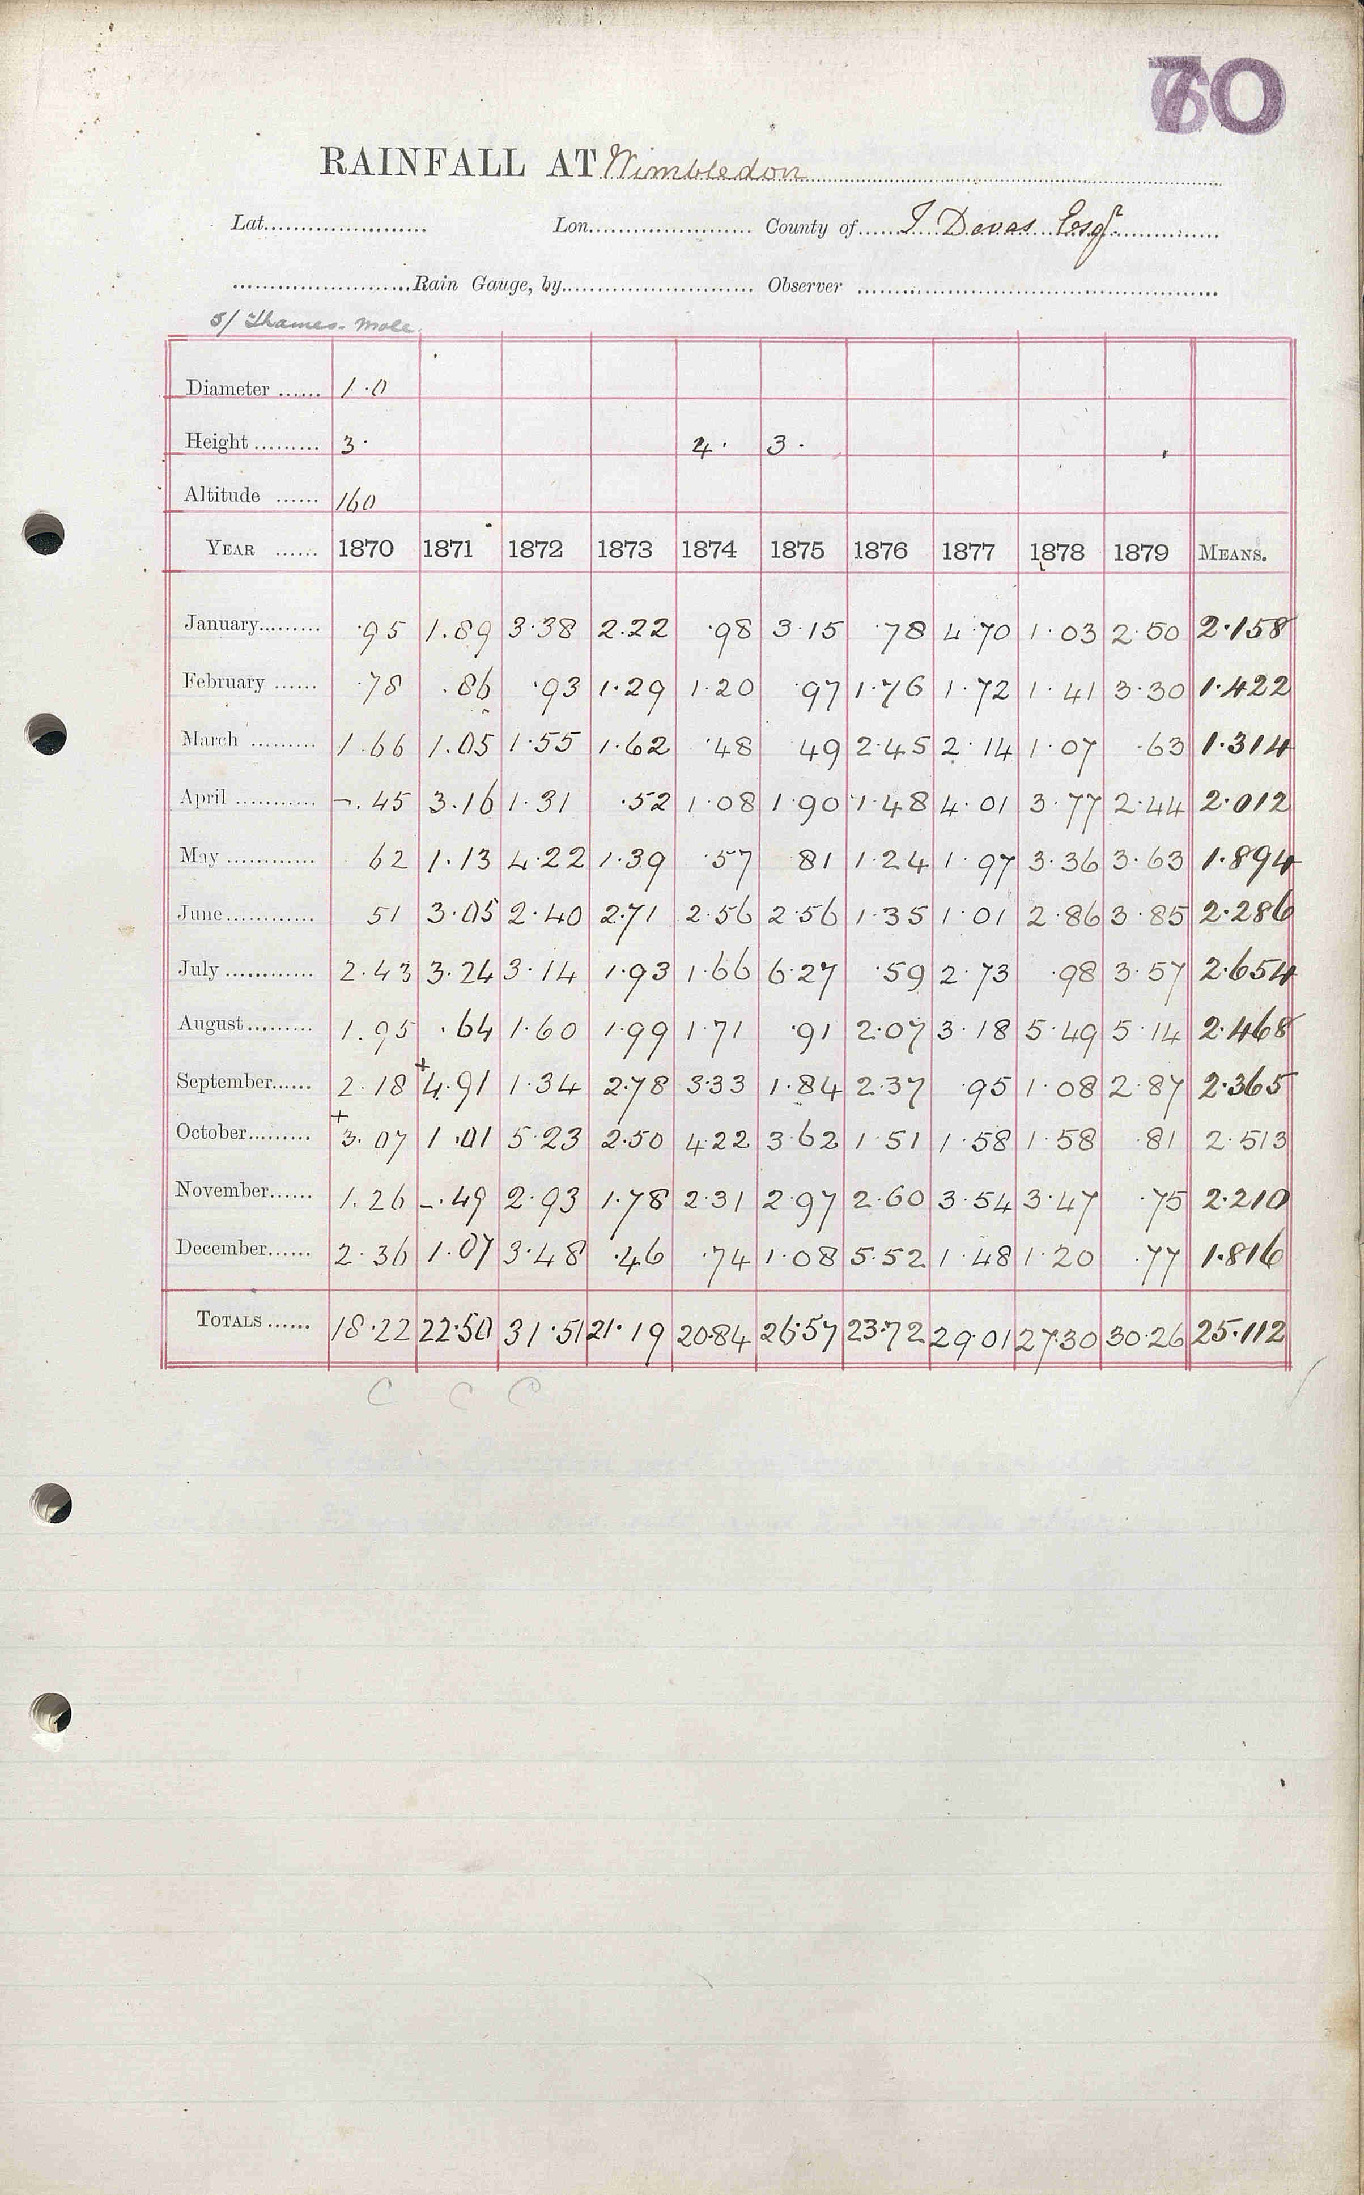 70
RAINFALL AT Wimbledon
Lat. Lon. County of J Devas Esqr
Rain Gauge, by Observer
5/ Thames-Mole
Diameter 1.0
Height 3. 4. 3.
Altitude 160
YEAR 1870 1871 1872 1873 1874 1875 1876 1877 1878 1879 MEANS.
January .95 1.89 3.38 2.22 .98 3.15 .78 4.70 1.03 2.50 2.158
February .78 .86 .93 1.29 1.20 .97 1.76 1.72 1.41 3.30 1.422
March 1.66 1.05 1.55 1.62 .48 49 2.45 2.14 1.07 .63 1.314
April -.45 3.16 1.31 .52 1.08 1.90 1.48 4.01 3.77 2.44 2.012
May 62 1.13 4.22 1.39 .57 81 1.24 1.97 3.36 3.63 1.894
June 51 3.05 2.40 2.71 2.56 2.56 1.35 1.01 2.86 3.85 2.286
July 2.43 3.24 3.14 1.93 1.66 6.27 .59 2.73 .98 3.57 2.654
August 1.95 .64 1.60 1.99 1.71 .91 2.07 3.18 5.49 5.14 2.468
September 2.18 +4.91 1.34 2.78 3.33 1.84 2.37 .95 1.08 2.87 2.365
October +3.07 1.01 5.23 2.50 4.22 3.62 1.51 1.58 1.58 .81 2.513
November 1.26 -.49 2.93 1.78 2.31 2.97 2.60 3.54 3.47 .75 2.210
December 2.36 1.07 3.48 .46 .74 1.08 5.52 1.48 1.20 .77 1.816
TOTALS 18.22 22.50 31.51 21.19 20.84 26.57 23.72 29.01 27.30 30.26 25.112
C C C